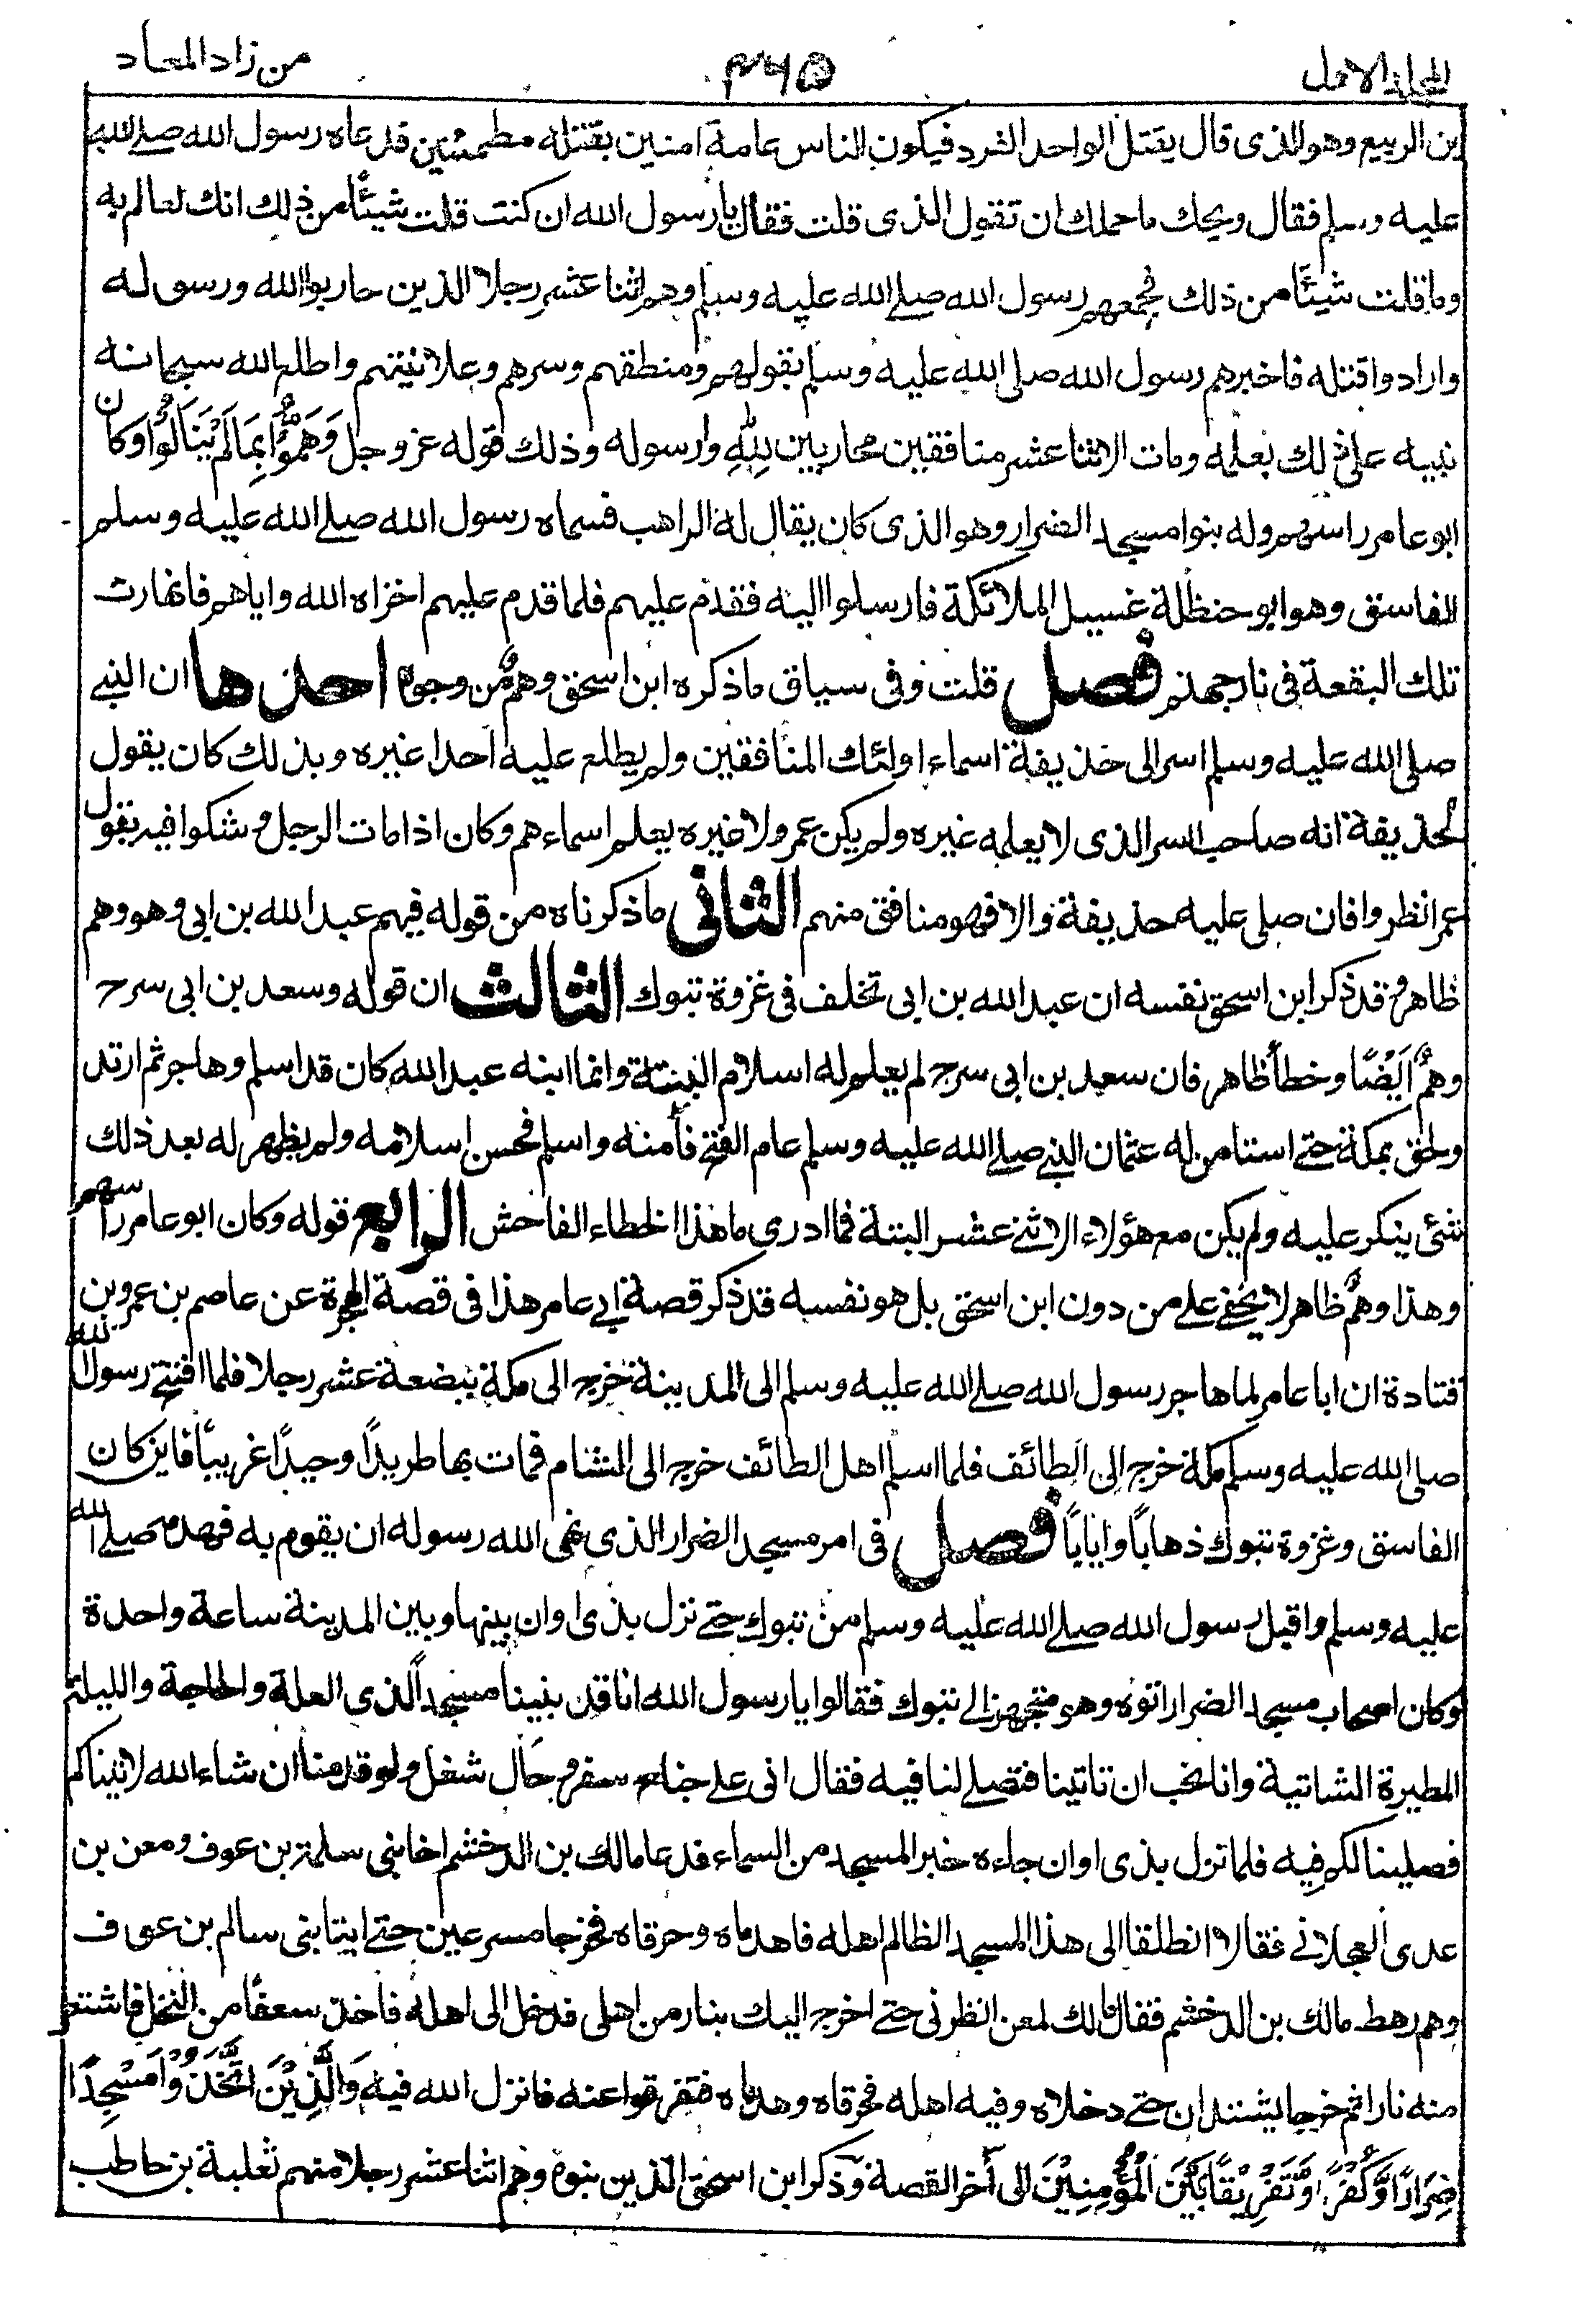 المجلد الاول
٣٦٥
من زاد المعاد
بن الربيع وهو الذى قال يقتل الواحد الفرد فيكون الناس عامة امنين بقتله مطمئنين فدعاه رسول الله صلے الله
عليه وسلم فقال ويحك ما حملك ان تقول الذى قلت فقال يا رسول الله ان كنت قلت شيئًا من ذلك انك لعالم به
وما قلت شيئًا من ذلك فجمعهم رسول الله صلے الله عليه وسلم وهم اثنا عشر رجلا الذين حاربوا الله ورسوله
وارادوا قتله فاخبرهم رسول الله صلى الله عليه وسلم بقولهم ومنطقهم وسرهم وعلانيتهم واطلع الله سبحانه
نبيه على ذلك بعلمه ومات الاثنا عشر منافقين محاربين لِلّٰهِ وارسوله وذلك قوله عز وجل وَهَمُّوْا بِمَا لَمْ يَنَالُوْا وكان
ابو عامر راسهم وله بنوا مسجد الضرار وهو الذى كان يقال له الراهب فسماه رسول الله صلے الله عليه وسلم
الفاسق وهو ابو حنظلة غسيل الملائكة فارسلوا اليه فقدم عليهم فلما قدم عليهم اخزاه الله واياهم فانهارت
تلك البقعة فى نار جهنم فصل قلت وفى سياق ما ذكره ابن اسحق وهمٌ من وجوه احدها ان النبے
صلى الله عليه وسلم اسر الى حذيفة اسماء اولئك المنافقين ولم يطلع عليه احدا غيره وبذلك كان يقول
لحذيفة انه صاحب السر الذى لا يعلمه غيره ولم يكن عمر ولا غيره يعلم اسماءهم وكان اذا مات الرجل وشكوا فيه يقول
عمر انظروا فان صلى عليه حذيفة والا فهو منافق منهم الثانى ما ذكرناه من قوله فيهم عبد الله بن ابى وهو وهم
ظاهر وقد ذكر ابن اسحق نفسه ان عبد الله بن ابى تخلف فى غزوة تبوك الثالث ان قوله وسعد بن ابى سرح
وهمٌ اَيْضًا وخطأ ظاهر فان سعد بن ابى سرح لم يعلم له اسلام البتة وانما ابنه عبد الله كان قد اسلم وهاجر ثم ارتد
ولحق بمكة حتے استامن له عثمان النبے صلے الله عليه وسلم عام الفتح فأمنه واسلم فحسن اسلامه ولم يظهر له بعد ذلك
شئ ينكر عليه ولم يكن مع هؤلاء الاثنے عشر البتة فما ادرى ما هذا الخطاء الفاحش الرابع قوله وكان ابو عامر راسهم
وهذا وهمٌ ظاهر لا يخفے علے من دون ابن اسحق بل هو نفسه قد ذكر قصة ابے عامر هذا فى قصة الهجرة عن عاصم بن عمرو بن
قتادة ان ابا عامر لما هاجر رسول الله صلے الله عليه وسلم الى المدينة خرج الى مكة ببضعة عشر رجلا فلما افتتح رسول الله
صلى الله عليه وسلم مكة خرج الى الطائف فلما اسلم اهل الطائف خرج الى الشام فمات بها طريدًا وحيدًا غريبًا فاين كان
الفاسق وغزوة تبوك ذهابًا وايابًا فصل فى امر مسجد الضرار الذى نهى الله رسوله ان يقوم به فهدمه صلے الله
عليه وسلم واقبل رسول الله صلے الله عليه وسلم من تبوك حتے نزل بذى اوان بينها وبين المدينة ساعة واحدة
وكان اصحاب مسجد الضرار اتوه وهو متجهز الے تبوك فقالوا يا رسول الله انا قد بنينا مسجدًا لذى العلة والحاجة والليلة
المطيرة الشاتية وانا نحب ان تاتينا فتصلے لنا فيه فقال انى علے جناح سفر و حال شغل ولو قدمنا ان شاء الله لاتيناكم
فصلينا لكم فيه فلما نزل بذى اوان جاءه خبر المسجد من السماء فدعا مالك بن الدخشم اخا بنى سلمة بن عوف ومعن بن
عدى العجلانے فقال انطلقا الى هذا المسجد الظالم اهله فاهدماه وحرقاه فخرجا مسرعين حتے ايتا بنى سالم بن عوف
وهم رهط مالك بن الدخشم فقال مالك لمعن انظرنى حتے اخرج اليك بنار من اهلى فدخل الى اهله فاخذ سعفًا من النخل فاشتعل
منه نارا ثم خرجا يشتدان حتے دخلاه وفيه اهله فحرقاه وهدماه فتفرقوا عنه فانزل الله فيه وَالَّذِيْنَ اتَّخَذُوْا مَسْجِدًا
ضِرَارًا وَّكُفْرًا وَّتَفْرِيْقًا بَيْنَ الْمُؤْمِنِيْنَ الى أخر القصة وذكر ابن اسحق الذين بنوه وهم اثنا عشر رجلا منهم ثعلبة بن حاطب